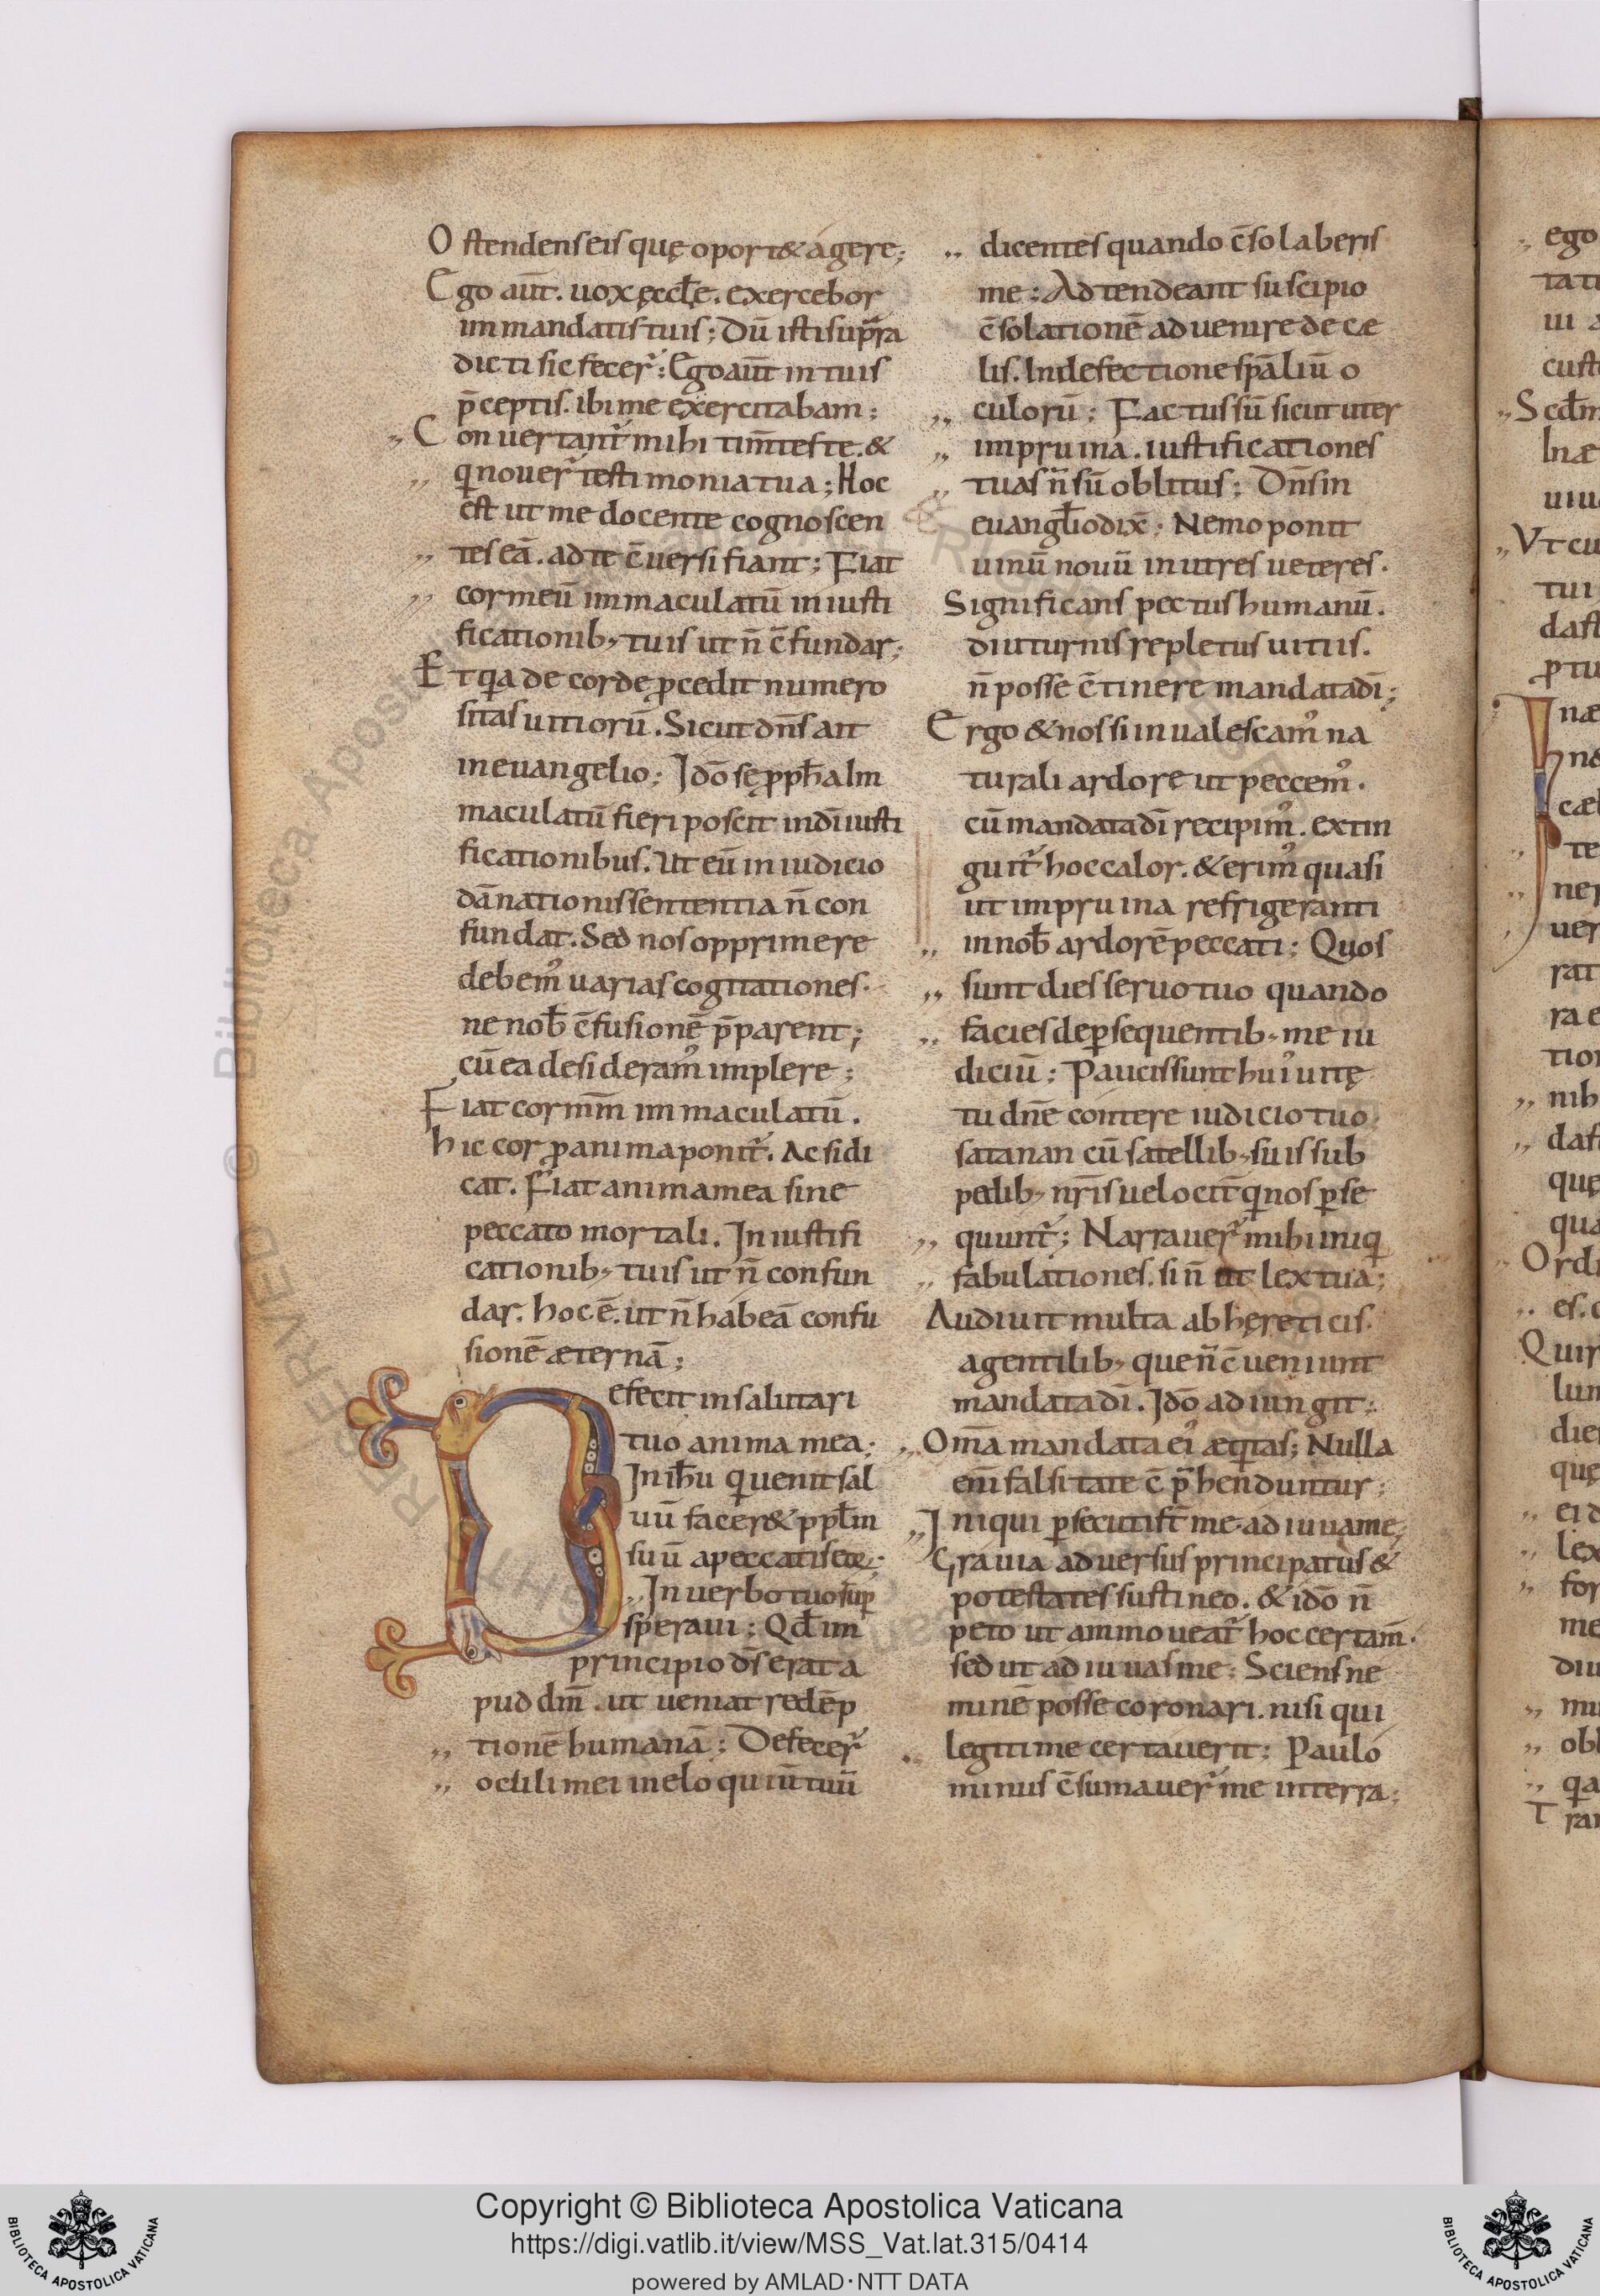 Ostendens eis quę oport& agere;
Ego aūt. uox ęccłe. exercebor
in mandatis tuis; Dū isti sup̄ra
dicti sic fecer̄; Ego aūt in tuis
p̄ceptis. ibi me exercitabam;
„ Conuertant̄ mihi tim̄tes te. &
„ qi nouer̄ testimonia tua; Hoc
est ut me docente cognoscen
„ tes eā. ad te c̄uersi fiant; Fiat
„ cor meū immaculatū in iusti
ficationib; tuis ut n̄ c̄fundar;
Et qa de corde ꝓcedit numero
sitas uitiorū. Sicut dn̄s ait
in euangelio; Idō sę ꝓpħa im
maculatū fieri poscit in dī iusti
ficationibus. Ut eū in iudicio
dānationis sententia n̄ con
fundat. Sed nos opprimere
debem᾽ uarias cogitationes.
ne nob̄ c̄fusionē p̄parent;
cū ea desideram᾽ implere;
Fiat cor mm̄ immaculatū.
hic cor ꝓ anima ponit̄. Ac si di
cat. Fiat anima mea sine
peccato mortali. In iustifi
cationib; tuis ut n̄ confun
dar. hoc ē. ut n̄ habeā confu
sionē æternā;
Defecit in salutari
tuo anima mea;
In iħu qi uenit sal
uū facer& ppłm
suū a peccatis eoꝝ;
„ In uerbo tuo sup̄
speraui; Qd̄ in
principio d̄s erat a
pud dm̄. ut ueniat redēp
tionē humanā; Defecer̄
„ oculi mei in eloquiū tuū
„ dicentes quando c̄solaberis
me; Adtendeant suscipio
c̄solationē aduenire de cæ
lis. In defectione sp̄aliū o
„ culorū; Factus sū sicut uter
„ in pruina. iustificationes
„ tuas n̄ sū oblitus; Dn̄s in
euangłio dix̄; Nemo ponit
uinū nouū in utres ueteres.
Significans pectus humanū.
diuturnis repletus uitiis.
n̄ posse c̄tinere mandata dī;
Ergo & nos si inualescam᾽ na
turali ardore ut peccem᾽.
cū mandata dī recipim᾽. extin
guit̄ hoc calor. & erim᾽ quasi
ut in pruina refrigeranti
„ in nob̄ ardorē peccati; Quos
„ sunt dies seruo tuo quando
„ facies de ꝑsequentib; me iu
diciū; Paucis sunt hui᾽ uitę
tu dn̄e contere iudicio tuo
satanan cū satellib; suis sub
pedib; nr̄is uelocit̄ qi nos ꝑse
„ quunt̄; Narrauer̄ mihi iniqi
„ fabulationes. si n̄ ut lex tua;
Audiuit multa ab hęreticis.
a gentilib; que n̄ c̄ueniunt
mandata dī. Idō adiungit;
„ Om̄a mandata ei᾽ æqitas; Nulla
eni᾽ falsitate c̄p̄henduntur;
„ Iniqui ꝑsecuti st̄ me. adiuua me;
Grauia aduersus principatus &
potestates sustineo. & idō n̄
peto ut ammoueat̄ hoc certam̄.
sed ut adiuuas me; Sciens ne
minē posse coronari. nisi qui
„ legitime certauerit; Paulo
minus c̄sumauer̄ me in terra;
„ ego
„ Scdm
„ Vt cu
tui
Ordi
Quir
Copyright © Biblioteca Apostolica Vaticana
https://digi.vatlib.it/view/MSS_Vat.lat.315/0414
powered by AMLAD·NTT DATA
BIBLIOTECA APOSTOLICA VATICANA
BIBLIOTECA APOSTOLICA VATICANA